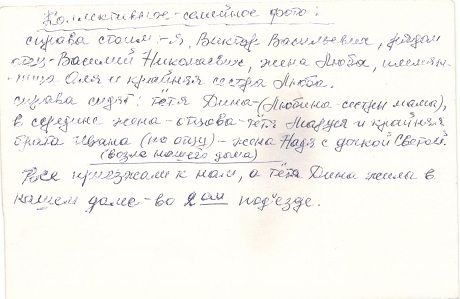 Коллективное - семейное фото:
справа стоит - я, Виктор Васильевич, рядом
отец - Василий Николаевич, жена Люба, племян-
ница Оля и крайняя сестра Люба.
справа сидят: тётя Дина - (Любина - сестры мамы),
в середине жена - отцова - тётя Маруся и крайняя
брата Ивана (по отцу) - жена Надя с дочкой Светой.
(возле нашего дома)
Все приезжали к нам, а тётя Дина жила в
нашем доме - во 2ом подъезде.